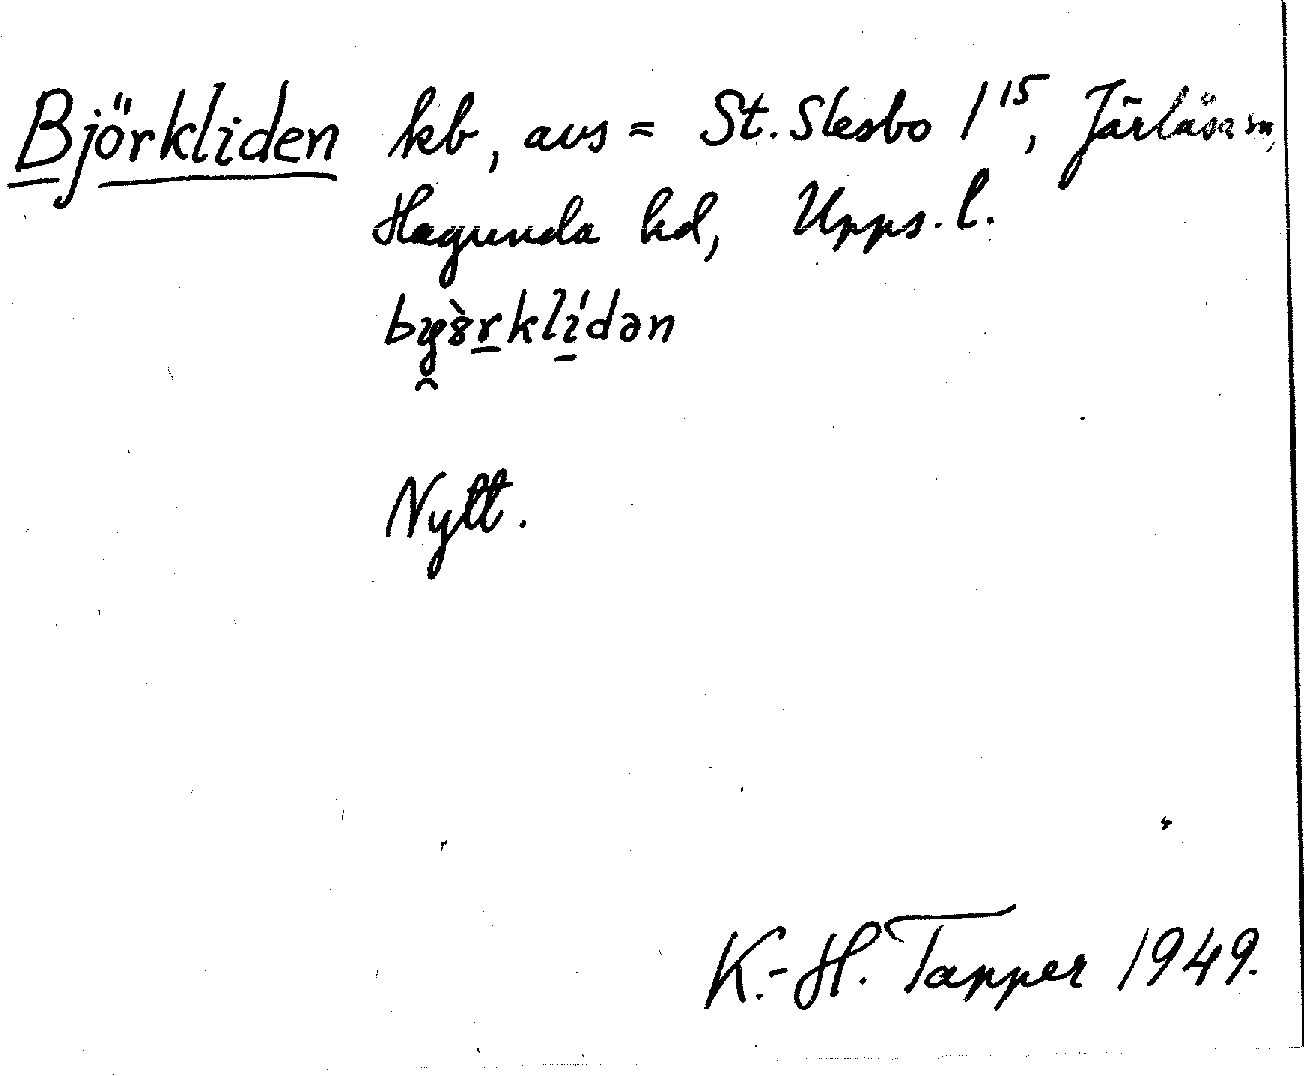 Björkliden kb, avs = St. Slesbo 1¹⁵, Järlåsa sn,
Hagunda hd, Upps. l.
Nytt.
K.-H. Tapper 1949.